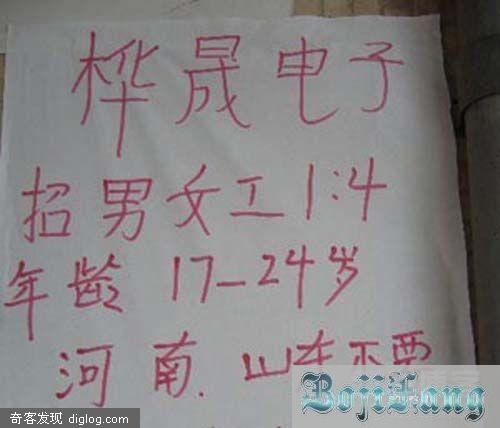 桦晟电子
招男女工1:4
年龄 17-24岁
河南.山东不要
BojiLang
奇客发现 diglog.com